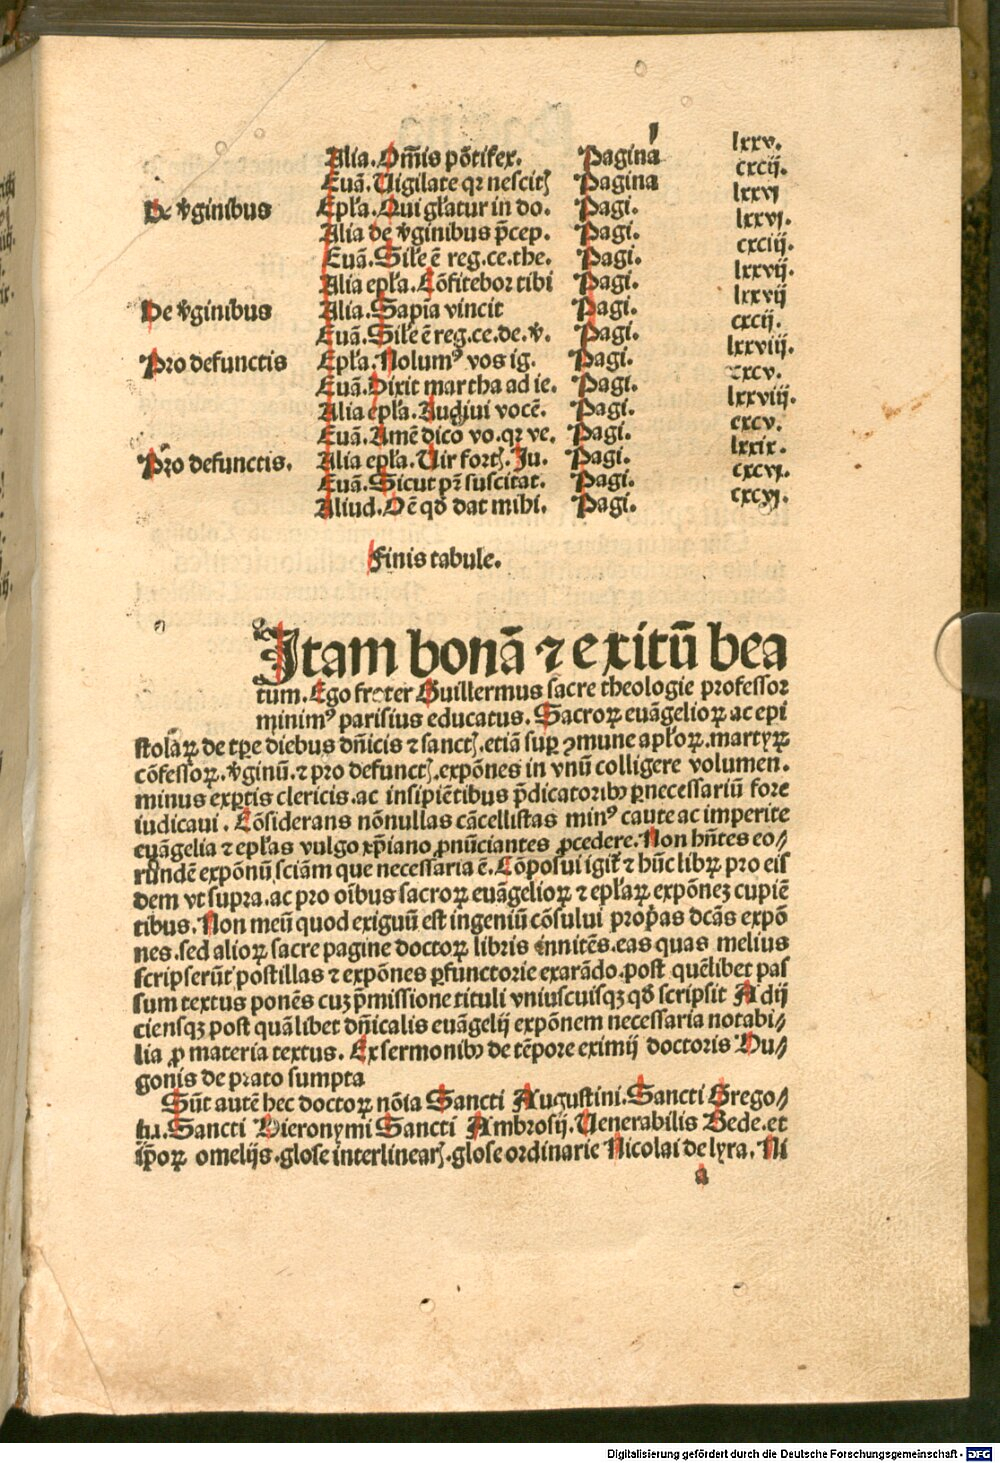 Alia. Om̄is pōtifex. Pagina lxxv.
Euā. Uigilate qꝛ nescitꝭ Pagina cxcij.
De v̾ginibus Epl̄a. Qui gl̄atur in do. Pagi. lxxvj
Alia de v̾ginibus p̄cep. Pagi. lxxvj.
Euā. Sil̄e ē reg. ce. the. Pagi. cxciij.
Alia epl̄a. Cōfitebor tibi Pagi. lxxvij.
De v̾ginibus Alia. Sapia vincit Pagi. lxxvij
Euā. Sil̄e ē reg. ce. de. v̾. Pagi. cxcij.
Pro defunctis Epl̄a. Nolumꝰ vos ig. Pagi. lxxviij.
Euā. Dixit martha ad ie. Pagi. cxcv.
Alia epl̄a. Audiui vocē. Pagi. lxxviij.
Euā. Amē dico vo. qꝛ ve. Pagi. cxcv.
Pro defunctis. Alia epl̄a. Uir fortꝭ. Ju. Pagi. lxxix.
Euā. Sicut pr̄ suscitat. Pagi. cxcvj.
Aliud. Oē qđ dat mihi. Pagi. cxcvj.
Finis tabule.
Uitam bonā ⁊ exitū bea
tum. Ego frater Guillermus sacre theologie professor
minimꝰ parisius educatus. Sacroꝝ euāgelioꝝ ac epi
stolaꝝ de tp̄e diebus dn̄icis ⁊ sanctꝭ. etiā suꝑ ꝯmune apl̄oꝝ. martyꝝ
cōfessoꝝ. v̾ginū. ⁊ pro defunctꝭ. expōnes in vnū colligere volumen.
minus exꝑtis clericis. ac insipiētibus p̄dicatoribꝫ ꝑnecessariū fore
iudicaui. Cōsiderans nōnullas cācellistas minꝰ caute ac imperite
euāgelia ⁊ epl̄as vulgo xp̄iano ꝓnūciantes ꝓcedere. Non hn̄tes eo⸗
rūndē expōnū sciām que necessaria ē. Cōposui igit᷑ ⁊ hūc libꝝ pro eis
dem vt supra. ac pro oībus sacroꝝ euāgelioꝝ ⁊ epl̄aꝝ expōnez cupiē
tibus. Non meū quod exiguū est ingeniū cōsului prop̄as dcās expō
nes. sed alioꝝ sacre pagine doctoꝝ libris innitēs. eas quas melius
scripserūt postillas ⁊ expōnes ꝑfunctorie exarādo. post quēlibet pas
sum textus ponēs cuꝫ p̄missione tituli vniuscuiusqꝫ qđ scripsit Adij
ciensqꝫ post quālibet dn̄icalis euāgelij expōnem necessaria notabi⸗
lia ꝓ materia textus. Ex sermonibꝫ de tēpore eximij doctoris Hu⸗
gonis de prato sumpta
Sūt autē hec doctoꝝ nōia Sancti Augustini. Sancti Grego⸗
rij. Sancti Hieronymi Sancti Ambrosij. Uenerabilis Bede. et
ip̄oꝝ omelijs. glose interlinearꝭ. glose ordinarie Nicolai de lyra. Ni
a
Digitalisierung gefördert durch die Deutsche Forschungsgemeinschaft - DFG